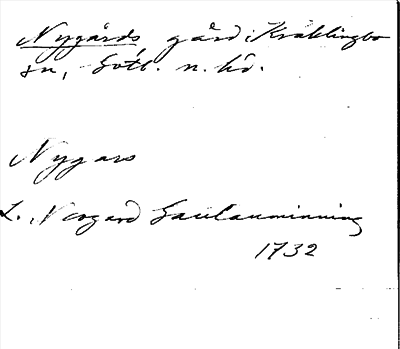 Nygårds gård, Kräklingbo
sn, Gotl. n. hd.
Nygars
L. Nygard Saulauminning
1732